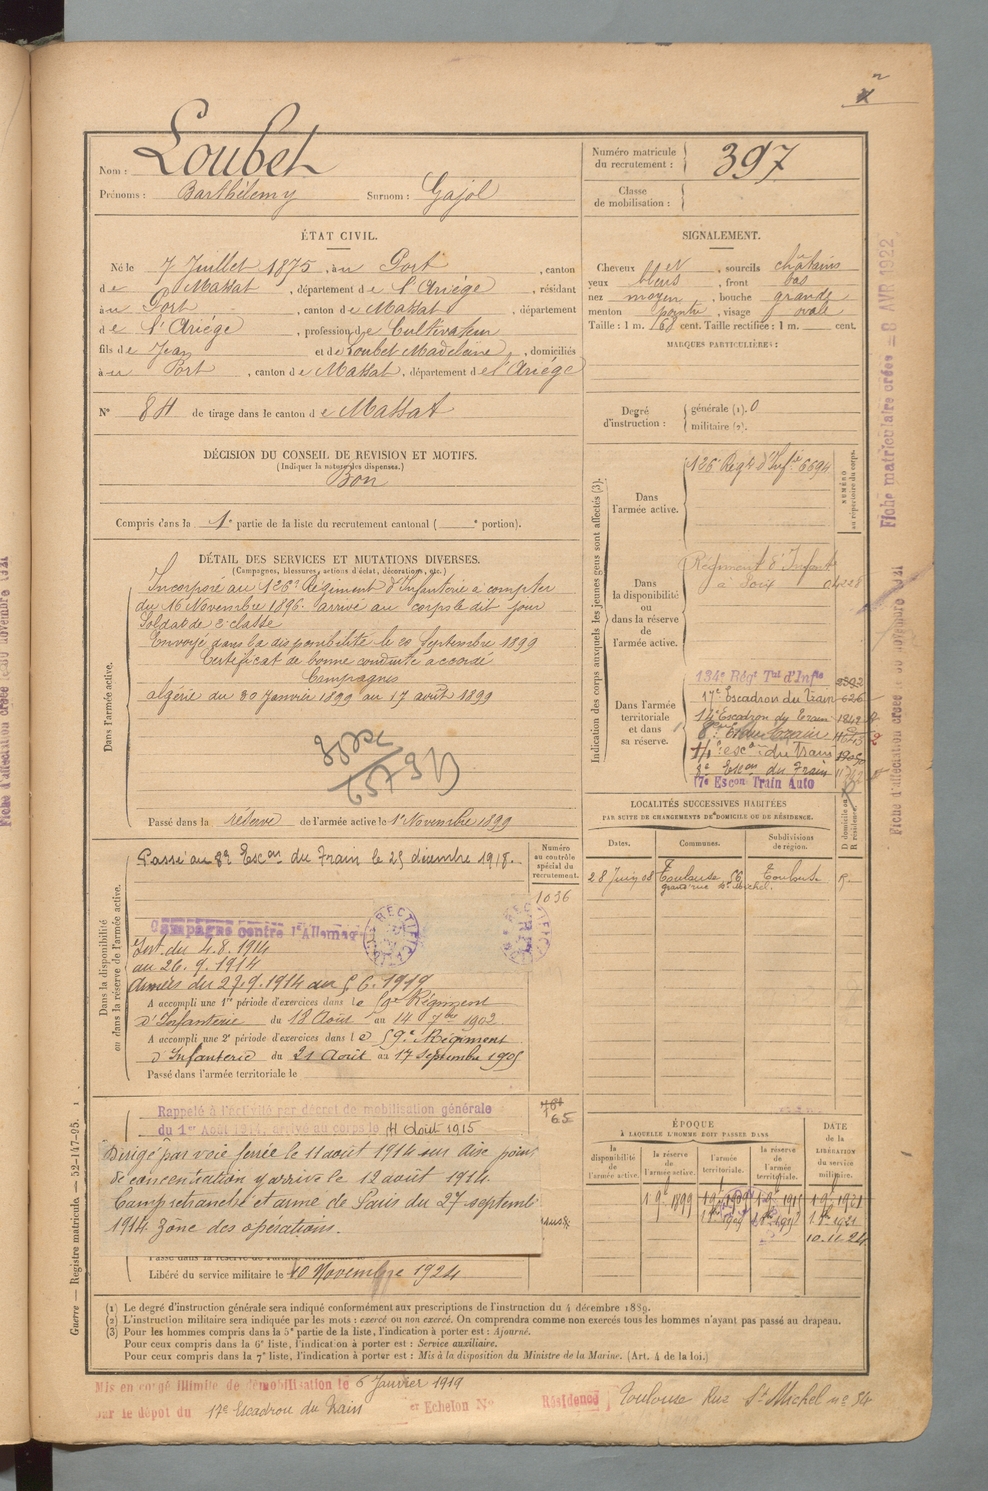 Nom : Loubet
Prénoms : Barthélemy Surnom : Gajol
Numéro matricule du recrutement : 397
Classe de mobilisation :
ÉTAT CIVIL.
Né le 7 Juillet 1875, à u Port, canton
de Massat, département de l'Ariége, résidant
à u Port, canton de Massat, département
de l'Ariége, profession de Cultivateur
fils de Jean et de Loubet Madeleine, domiciliés
à u Port, canton de Massat, département de l'Ariége
N° 84 de tirage dans le canton de Massat
SIGNALEMENT.
Cheveux , sourcils châtains
yeux bleus, front bas
nez moyen, bouche grande
menton pointu, visage ovale
Taille : 1 m. 60 cent. Taille rectifiée : 1 m. cent.
MARQUES PARTICULIÈRES :
Degré d'instruction : générale (1). 0
militaire (2).
DÉCISION DU CONSEIL DE REVISION ET MOTIFS.
(Indiquer la nature des dispenses.)
Bon
Compris dans la 1e partie de la liste du recrutement cantonal ( e portion).
DÉTAIL DES SERVICES ET MUTATIONS DIVERSES.
(Campagnes, blessures, actions d'éclat, décorations, etc.)
Dans l'armée active.
Incorporé au 126e Régiment d'Infanterie à compter
du 16 Novembre 1896. arrivé au corps le dit jour
Soldat de 2e classe
Envoyé dans la disponibilité le 20 Septembre 1899
Certificat de bonne conduite accordé
Campagnes
algérie du 30 Janvier 1899 au 17 avril 1899
Passé dans la réserve de l'armée active le 1er Novembre 1899
Indication des corps auxquels les jeunes gens sont affectés (3).
NUMÉRO au répertoire du corps.
Dans l'armée active.
126e Regt d'Infie 6694
Dans la disponibilité ou dans la réserve de l'armée active.
Régiment d'Infant
à Foix
Dans l'armée territoriale et dans sa réserve.
134e Régt Tal d'Infie
17e Escadron du Train
Escadron du Train
escon du Train
8e Escon du Train
17e Escon Train Auto
Dans la disponibilité ou dans la réserve de l'armée active.
Passé au 8e Escon du Train le 25 décembre 1915.
Numéro au contrôle spécial du recrutement.
1036
Campagne contre l'Allemag
RECTIFICA
Int. du 4.8.1914
au 26.9.1914
Armées du 27.9.1914 au
A accompli une 1re période d'exercices dans le Régiment
d'Infanterie du 18 Août au 14 7bre 1902
A accompli une 2e période d'exercices dans le 59e Régiment
d'Infanterie du 21 Août au 17 Septembre 1905
Passé dans l'armée territoriale le
LOCALITÉS SUCCESSIVES HABITÉES
PAR SUITE DE CHANGEMENTS DE DOMICILE OU DE RÉSIDENCE.
Dates. Communes. Subdivisions de région. D domicile ou R résidence.
28 Juin 08 Toulouse, 56 Toulouse R.
grand'rue St Michel.
Rappelé à l'activité par décret de mobilisation générale
du 1er Août 1914, arrivé au corps le Août 1915
65
Dirigé par voie ferrée le 11 août 1914 sur
de concentration y arrive le 12 août 1914.
Camp retranché et armé de Paris du 27 septemb
1914 Zône des opérations.
Libéré du service militaire le 10 Novembre 1924
ÉPOQUE
À LAQUELLE L'HOMME DOIT PASSER DANS
la disponibilité de l'armée active. la réserve de l'armée active. l'armée territoriale. la réserve de l'armée territoriale.
DATE de la LIBÉRATION du service militaire.
10.11.24
(1) Le degré d'instruction générale sera indiqué conformément aux prescriptions de l'instruction du 4 décembre 1889.
(2) L'instruction militaire sera indiquée par les mots : exercé ou non exercé. On comprendra comme non exercés tous les hommes n'ayant pas passé au drapeau.
(3) Pour les hommes compris dans la 5e partie de la liste, l'indication à porter est : Ajourné.
Pour ceux compris dans la 6e liste, l'indication à porter est : Service auxiliaire.
Pour ceux compris dans la 7e liste, l'indication à porter est : Mis à la disposition du Ministre de la Marine. (Art. 4 de la loi.)
Mis en congé illimité de démobilisation le 6 Janvier 1919
par le dépôt du 17e Escadron du Train er Echelon N° Résidence Toulouse Rue St Michel no 54
Guerre — Registre matricule. — 52-147-95.
Fiche matriculaire créée = 8 AVR 1922